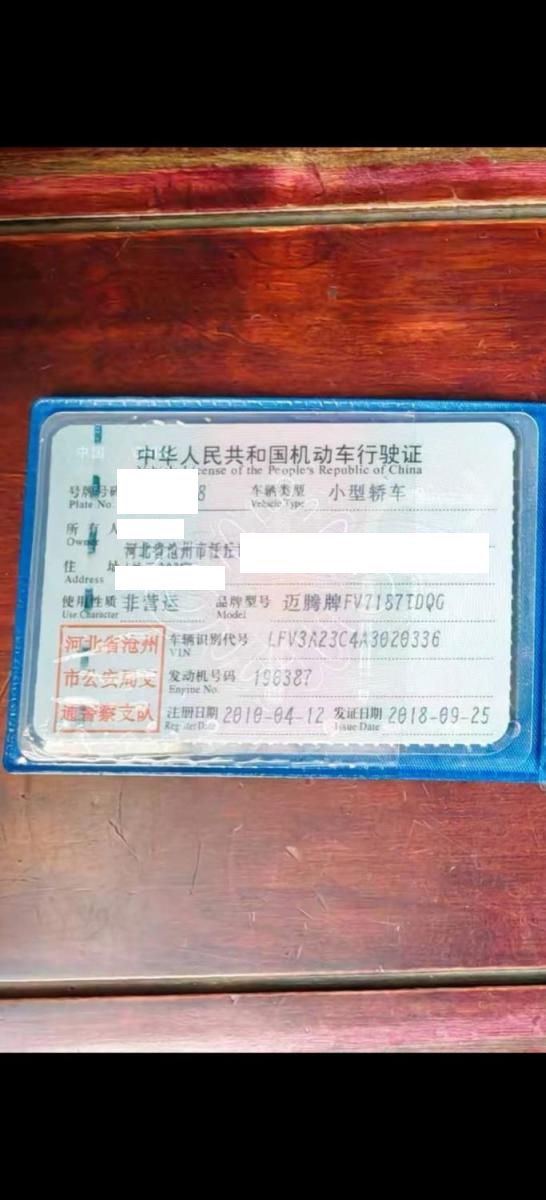 中国
中华人民共和国机动车行驶证
cense of the People's Republic of China
号牌号码 8 车辆类型 小型轿车
Plate No. Vehicle Type
所有人
Owner
河北省沧州市任丘
住 址
Address
使用性质 非营运 品牌型号 迈腾牌FV7187TDQG
Use Character Model
河北省沧州
市公安局交
通警察支队
车辆识别代号 LFV3A23C4A3020336
VIN
发动机号码 190387
Engine No.
注册日期 2010-04-12 发证日期 2018-09-25
Register Date Issue Date